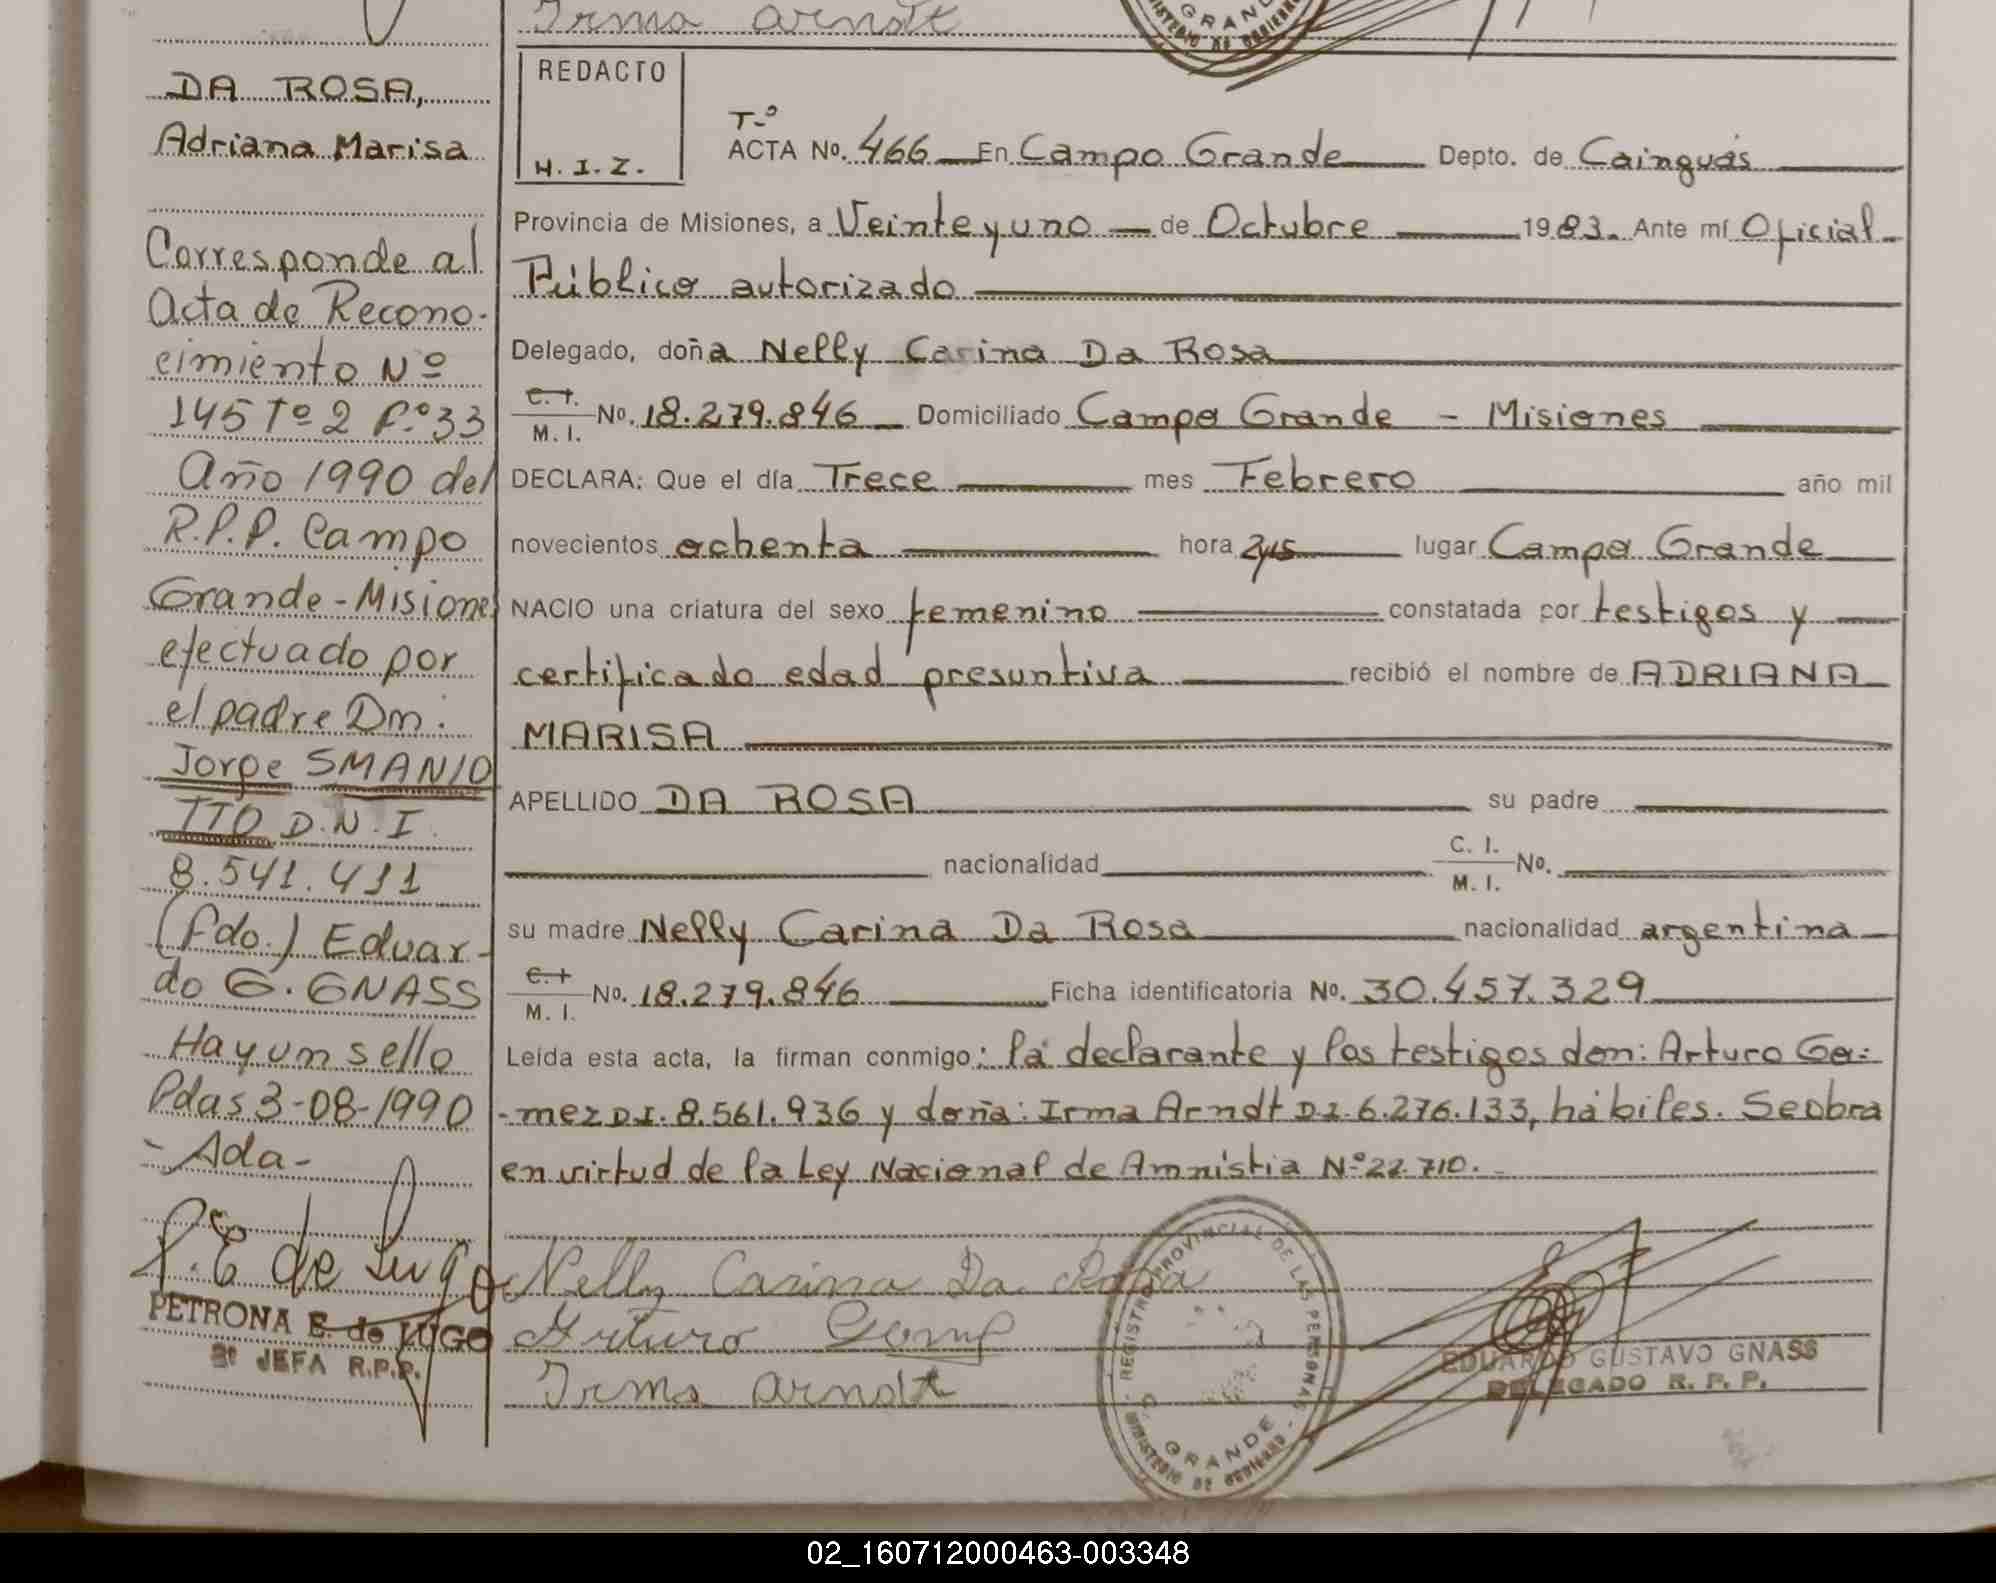 Irma Arndt
GRANDE
MINISTERIO DE GOBIERNO
DA ROSA,
Adriana Marisa
Corresponde al
Acta de Recono-
cimiento Nº
145 Tº 2 Fº 33
Año 1990 del
R.P.P. Campo
Grande - Misiones
efectuado por
el padre Dn.
Jorge SMANIO
TTO D.N.I.
8.541.411
(Fdo.) Eduar-
do G. GNASS
Hay un sello
Pdas 3-08-1990
- Ada -
P. E de Lugo
PETRONA E. de LUGO
2º JEFA R.P.P.
REDACTO
H.I.Z.
Tº
ACTA No. 466 En Campo Grande Depto. de Cainguás
Provincia de Misiones, a Veinte y uno de Octubre 1983. Ante mí Oficial
Público autorizado
Delegado, doña Nelly Carina Da Rosa
C. I.
M. I. No. 18.279.846 Domiciliado Campo Grande - Misiones
DECLARA: Que el día Trece mes Febrero año mil
novecientos ochenta hora lugar Campo Grande
NACIO una criatura del sexo femenino constatada por testigos y
certificado edad presuntiva recibió el nombre de ADRIANA
MARISA
APELLIDO DA ROSA su padre
nacionalidad C. I.
M. I. No.
su madre Nelly Carina Da Rosa nacionalidad argentina
C. I.
M. I. No. 18.279.846 Ficha identificatoria No. 30.457.329
Leída esta acta, la firman conmigo: la declarante y los testigos don: Arturo Go-
-mez D.I. 8.561.936 y doña: Irma Arndt D.I. 6.276.133, hábiles. Se obra
en virtud de la Ley Nacional de Amnistia Nº 22.710.-
Nelly Carina Da Rosa
Arturo Gomez
Irma Arndt
REGISTRO PROVINCIAL DE LAS PERSONAS
GRANDE
MINISTERIO DE GOBIERNO
EDUARDO GUSTAVO GNASS
DELEGADO R. P. P.
02_160712000463-003348